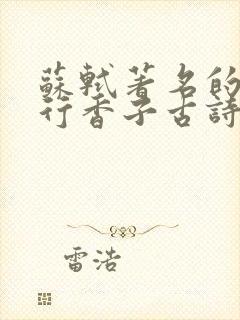 蘇軾著名的
行香子古詩
雷浩